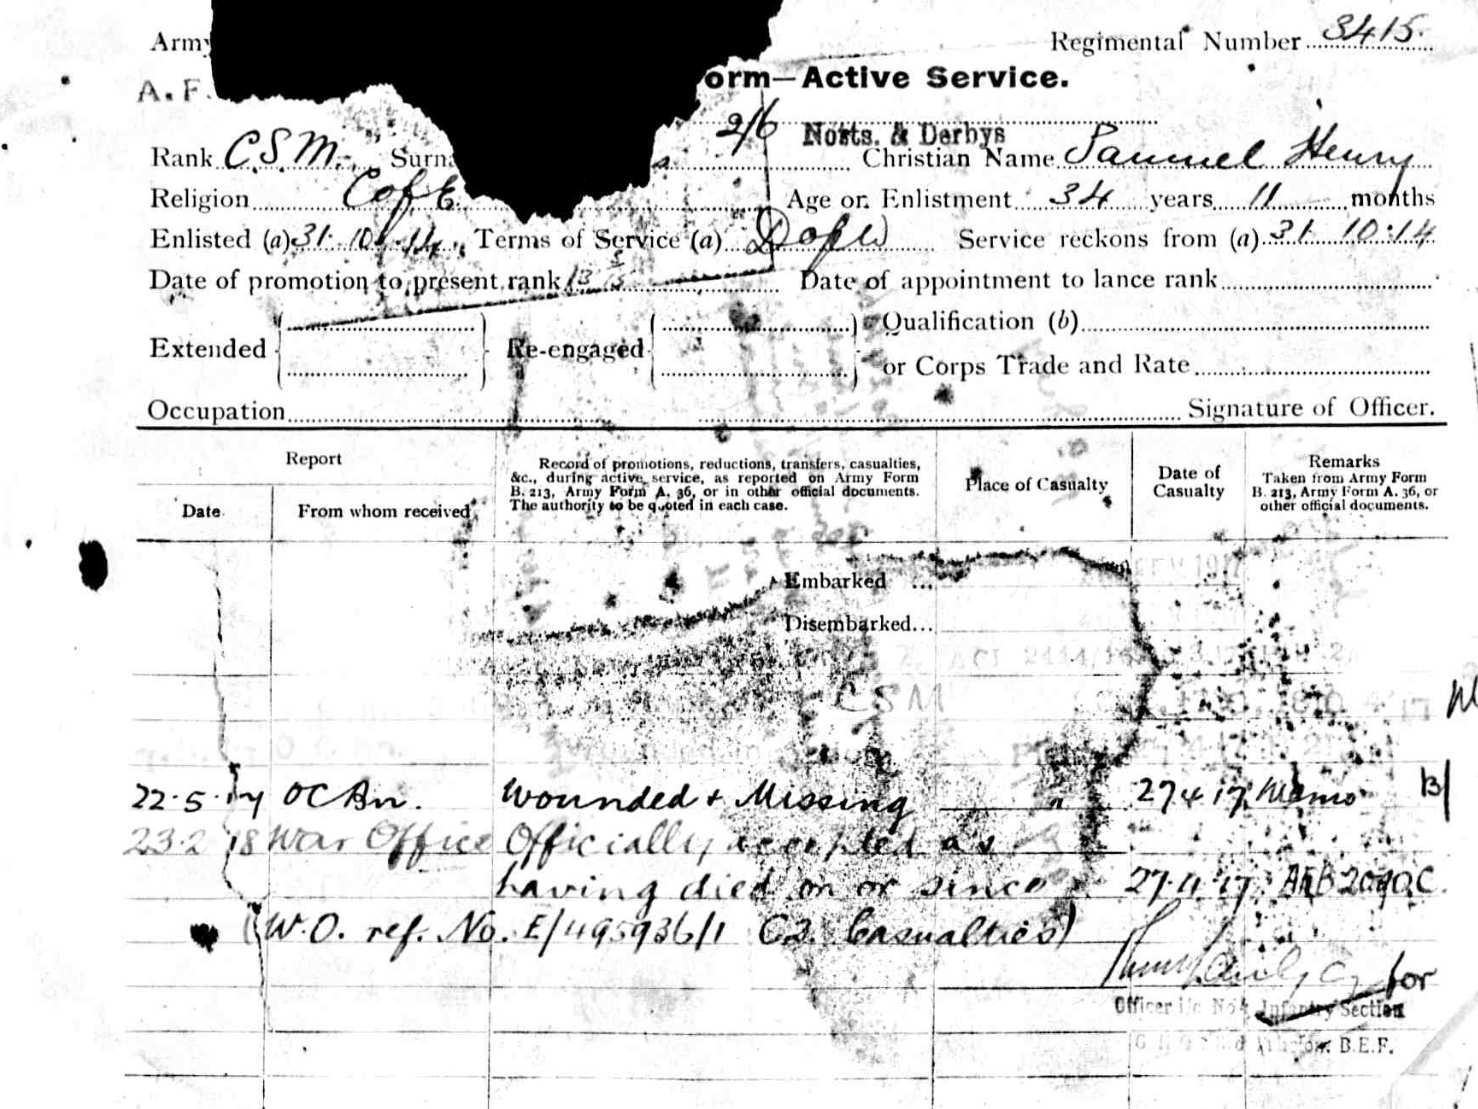 Army
Regimental Number 3415.
A. F.
orm—Active Service.
2/6 Notts. & Derbys
Rank C.S.M. Surna s Christian Name Samuel Henry
Religion C of E Age on Enlistment 34 years 11 months
Enlisted (a) 31. 10. 14. Terms of Service (a) Service reckons from (a) 31 10.14
Date of promotion to present rank Date of appointment to lance rank
Extended Re-engaged Qualification (b)
or Corps Trade and Rate
Occupation Signature of Officer.
Report
Date
From whom received
Record of promotions, reductions, transfers, casualties,
&c., during active service, as reported on Army Form
B. 213, Army Form A. 36, or in other official documents.
The authority to be quoted in each case.
Place of Casualty
Date of
Casualty
Remarks
Taken from Army Form
B. 213, Army Form A. 36, or
other official documents.
Embarked ...
Disembarked...
CSM
22.5.17 OC Bn. Wounded & Missing " 27 4 17 Memo B/
23 2 18 War Office Officially accepted as
having died on or since 27.4.17. AFB 2090C.
(W.O. ref. No. E/495936/1 C2. Casualties)
for
Officer i/c No 4 Infantry Section
B.E.F.